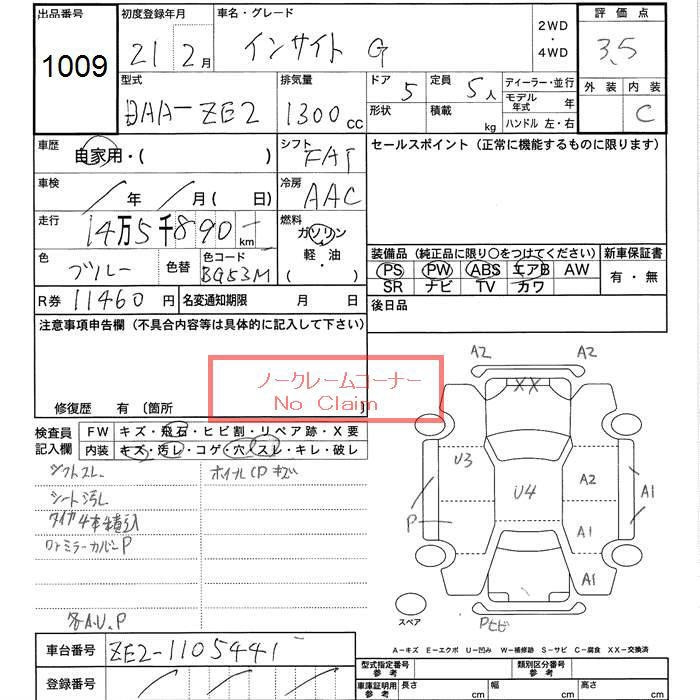 出品番号
1009
初度登録年月
21 2月
車名・グレード
インサイト G
2WD
・
4WD
評価点
3.5
外装 内装
C
型式
DAA-ZE2
排気量
1300cc
ドア 5
形状
定員 5人
積載 kg
ディーラー・並行
モデル年式 年
ハンドル 左・右
車歴
自家用・( )
シフト
FAT
セールスポイント(正常に機能するものに限ります)
車検
年 月( 日)
冷房
AAC
走行
14万5千890 km
燃料
ガソリン
軽・油
( )
色
ブルー
色替
色コード
BG53M
装備品(純正品に限り○をつけてください)
PS PW ABS エアB AW
SR ナビ TV カワ
新車保証書
有・無
R券 11460円
名変通知期限 月 日
後日品
注意事項申告欄(不具合内容等は具体的に記入して下さい)
ノークレームコーナー
No Claim
修復歴 有〔箇所 〕
検査員記入欄
FW キズ・飛石・ヒビ割・リペア跡・X要
内装 キズ・汚レ・コゲ・穴・スレ・キレ・破レ
シフトスレ
ホイルCPキズ
シート汚レ
タイヤ4本積込
ドアミラーカバーP
各A.U.P
A2 A2
XX
U3
U4
A2
A1
P
A1
A1
スペア
Pヒビ
A−キズ E−エクボ U−凹み W−補修跡 S−サビ C−腐食 XX−交換済
車台番号
ZE2-1105441
登録番号
型式指定番号
参考
類別区分番号
参考
車庫証明用
参考
長さ cm
幅 cm
高さ cm